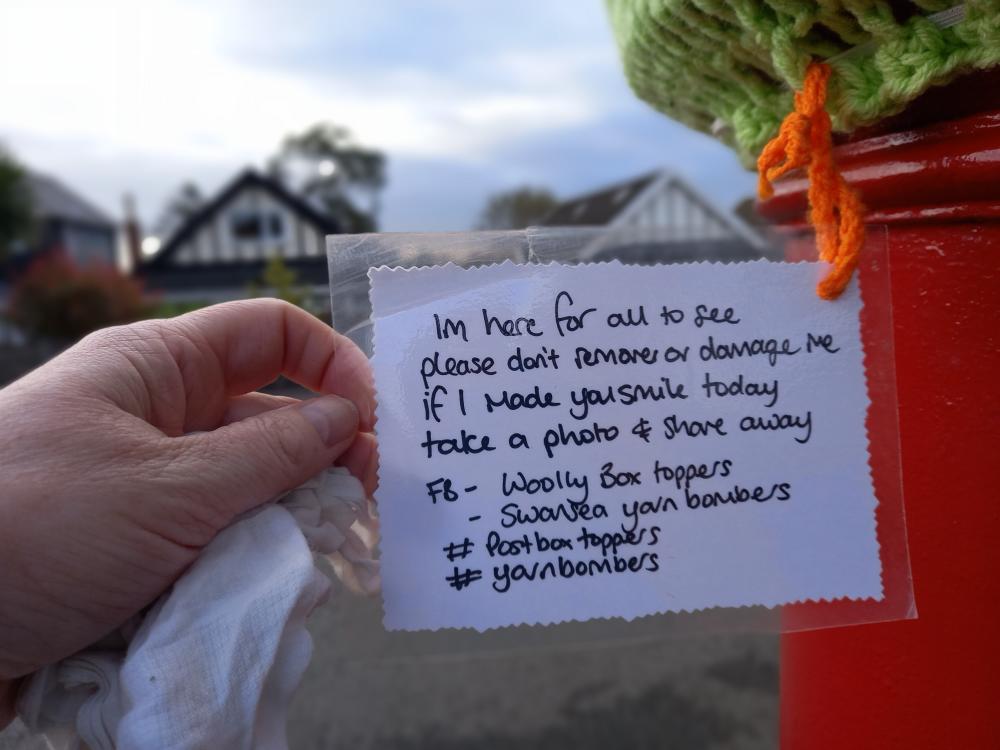 Im here for all to see
please don't remove or damage me
if I made you smile today
take a photo & share away
FB - Woolly Box toppers
- Swansea yarn bombers
# Postbox toppers
# yarnbombers